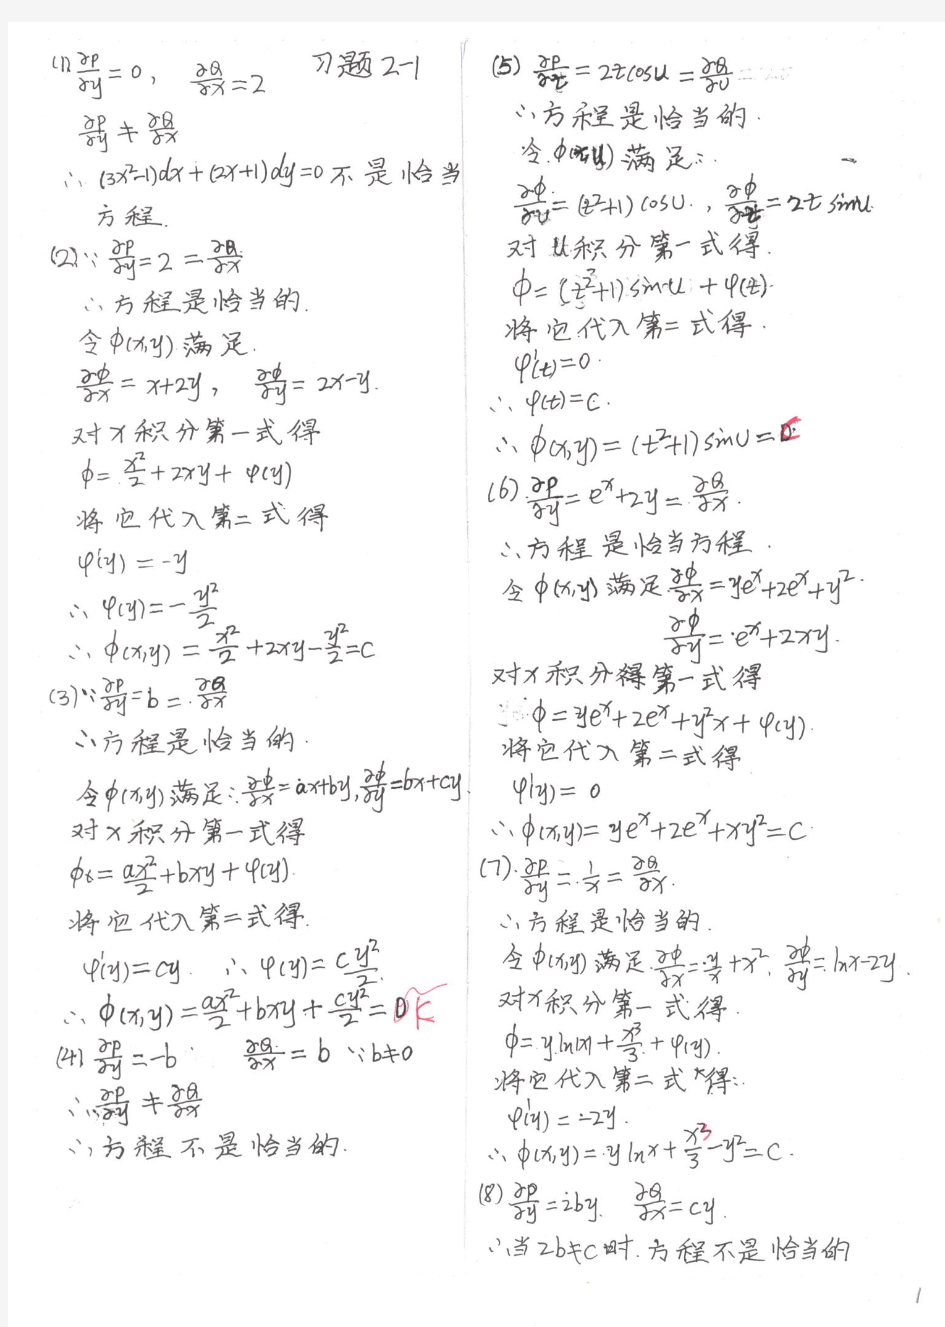 习题2-1
(1) ∂P/∂y = 0, ∂Q/∂x = 2
∂P/∂y ≠ ∂Q/∂x
∴ (3x²-1)dx + (2x+1)dy = 0 不是恰当
方程.
(2) ∵ ∂P/∂y = 2 = ∂Q/∂x
∴ 方程是恰当的.
令φ(x,y)满足.
∂φ/∂x = x+2y, ∂φ/∂y = 2x-y.
对x积分第一式得
φ = x²/2 + 2xy + φ(y)
将它代入第二式得
φ'(y) = -y
∴ φ(y) = -y²/2
∴ φ(x,y) = x²/2 + 2xy - y²/2 = C
(3) ∵ ∂P/∂y = b = ∂Q/∂x
∴ 方程是恰当的.
令φ(x,y)满足: ∂φ/∂x = ax+by, ∂φ/∂y = bx+cy.
对x积分第一式得
φ = ax²/2 + bxy + φ(y).
将它代入第二式得.
φ'(y) = cy. ∴ φ(y) = cy²/2.
∴ φ(x,y) = ax²/2 + bxy + cy²/2 =
(4) ∂P/∂y = -b ∂Q/∂x = b ∵ b≠0
∴ ∂P/∂y ≠ ∂Q/∂x
∴ 方程不是恰当的.
(5) ∂P/∂t = 2tcosu = ∂Q/∂u
∴ 方程是恰当的.
令 满足:
∂φ/∂u = (t²+1)cosu., ∂φ/∂t = 2t sinu.
对u积分第一式得.
φ = (t²+1)sinu + φ(t).
将它代入第二式得.
φ'(t) = 0.
∴ φ(t) = c.
∴ φ(x,y) = (t²+1)sinu = C
(6) ∂P/∂y = eˣ+2y = ∂Q/∂x.
∴ 方程是恰当方程.
令φ(x,y)满足 ∂φ/∂x = yeˣ+2eˣ+y².
∂φ/∂y = eˣ+2xy.
对x积分得第一式得
φ = yeˣ+2eˣ+y²x+φ(y).
将它代入第二式得
φ'(y) = 0
∴ φ(x,y) = yeˣ+2eˣ+xy² = C.
(7) ∂P/∂y = 1/x = ∂Q/∂x.
∴ 方程是恰当的.
令φ(x,y)满足 ∂φ/∂x = y/x + x², ∂φ/∂y = lnx-2y.
对x积分第一式得.
φ = yln|x| + x³/3 + φ(y).
将它代入第二式得:
φ'(y) = -2y.
∴ φ(x,y) = ylnx + x³/3 - y² = C.
(8) ∂P/∂y = 2by. ∂Q/∂x = cy.
∴ 当2b≠c时. 方程不是恰当的
1